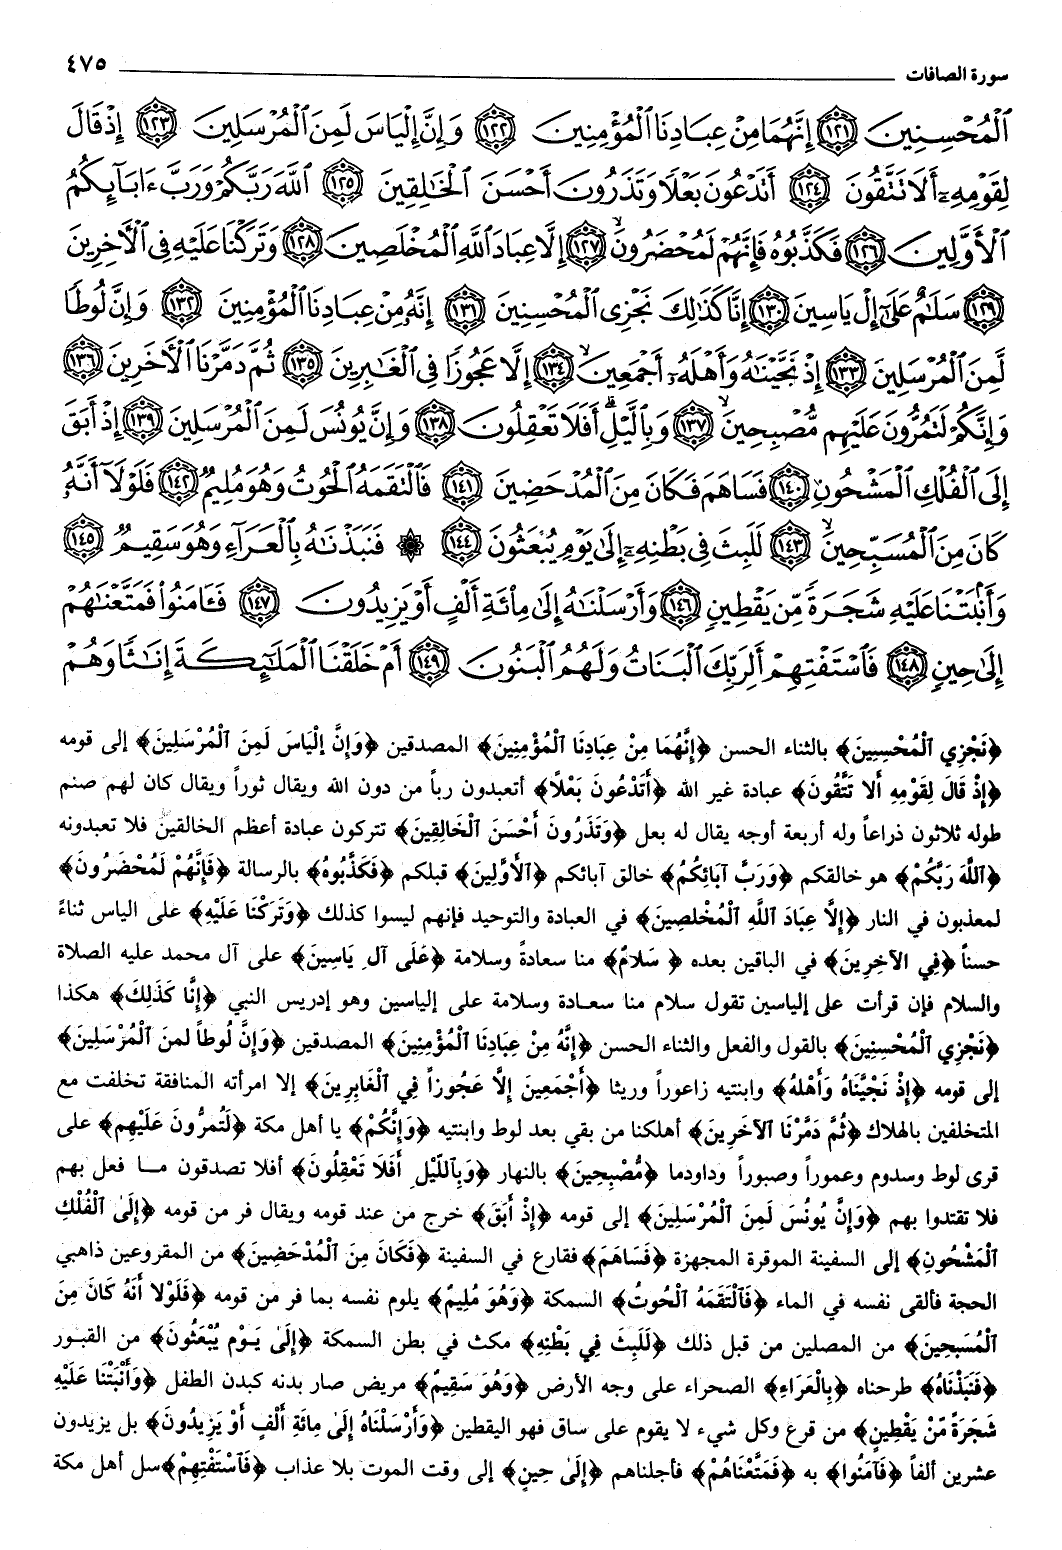 سورة الصافات ٤٧٥
ٱلْمُحْسِنِينَ ١٢١ إِنَّهُمَا مِنْ عِبَادِنَا ٱلْمُؤْمِنِينَ ١٢٢ وَإِنَّ إِلْيَاسَ لَمِنَ ٱلْمُرْسَلِينَ ١٢٣ إِذْ قَالَ
لِقَوْمِهِۦٓ أَلَا تَتَّقُونَ ١٢٤ أَتَدْعُونَ بَعْلًا وَتَذَرُونَ أَحْسَنَ ٱلْخَٰلِقِينَ ١٢٥ ٱللَّهَ رَبَّكُمْ وَرَبَّ ءَابَآئِكُمُ
ٱلْأَوَّلِينَ ١٢٦ فَكَذَّبُوهُ فَإِنَّهُمْ لَمُحْضَرُونَ ١٢٧ إِلَّا عِبَادَ ٱللَّهِ ٱلْمُخْلَصِينَ ١٢٨ وَتَرَكْنَا عَلَيْهِ فِى ٱلْأَخِرِينَ
١٢٩ سَلَٰمٌ عَلَىٰٓ إِلْ يَاسِينَ ١٣٠ إِنَّا كَذَٰلِكَ نَجْزِى ٱلْمُحْسِنِينَ ١٣١ إِنَّهُۥ مِنْ عِبَادِنَا ٱلْمُؤْمِنِينَ ١٣٢ وَإِنَّ لُوطًا
لَّمِنَ ٱلْمُرْسَلِينَ ١٣٣ إِذْ نَجَّيْنَٰهُ وَأَهْلَهُۥٓ أَجْمَعِينَ ١٣٤ إِلَّا عَجُوزًا فِى ٱلْغَٰبِرِينَ ١٣٥ ثُمَّ دَمَّرْنَا ٱلْأَخَرِينَ ١٣٦
وَإِنَّكُمْ لَتَمُرُّونَ عَلَيْهِم مُّصْبِحِينَ ١٣٧ وَبِٱلَّيْلِ أَفَلَا تَعْقِلُونَ ١٣٨ وَإِنَّ يُونُسَ لَمِنَ ٱلْمُرْسَلِينَ ١٣٩ إِذْ أَبَقَ
إِلَى ٱلْفُلْكِ ٱلْمَشْحُونِ ١٤٠ فَسَاهَمَ فَكَانَ مِنَ ٱلْمُدْحَضِينَ ١٤١ فَٱلْتَقَمَهُ ٱلْحُوتُ وَهُوَ مُلِيمٌ ١٤٢ فَلَوْلَآ أَنَّهُۥ
كَانَ مِنَ ٱلْمُسَبِّحِينَ ١٤٣ لَلَبِثَ فِى بَطْنِهِۦٓ إِلَىٰ يَوْمِ يُبْعَثُونَ ١٤٤ ۞ فَنَبَذْنَٰهُ بِٱلْعَرَآءِ وَهُوَ سَقِيمٌ ١٤٥
وَأَنۢبَتْنَا عَلَيْهِ شَجَرَةً مِّن يَقْطِينٍ ١٤٦ وَأَرْسَلْنَٰهُ إِلَىٰ مِا۟ئَةِ أَلْفٍ أَوْ يَزِيدُونَ ١٤٧ فَـَٔامَنُوا۟ فَمَتَّعْنَٰهُمْ
إِلَىٰ حِينٍ ١٤٨ فَٱسْتَفْتِهِمْ أَلِرَبِّكَ ٱلْبَنَاتُ وَلَهُمُ ٱلْبَنُونَ ١٤٩ أَمْ خَلَقْنَا ٱلْمَلَٰٓئِكَةَ إِنَٰثًا وَهُمْ
﴿نَجْزِي ٱلْمُحْسِنِينَ﴾ بالثناء الحسن ﴿إِنَّهُمَا مِنْ عِبَادِنَا ٱلْمُؤْمِنِينَ﴾ المصدقين ﴿وَإِنَّ إِلْيَاسَ لَمِنَ ٱلْمُرْسَلِينَ﴾ إلى قومه
﴿إِذْ قَالَ لِقَوْمِهِ أَلا تَتَّقُونَ﴾ عبادة غير الله ﴿أَتَدْعُونَ بَعْلاً﴾ أتعبدون رباً من دون الله ويقال ثوراً ويقال كان لهم صنم
طوله ثلاثون ذراعاً وله أربعة أوجه يقال له بعل ﴿وَتَذَرُونَ أَحْسَنَ ٱلْخَالِقِينَ﴾ تتركون عبادة أعظم الخالقين فلا تعبدونه
﴿ٱللَّهَ رَبَّكُمْ﴾ هو خالقكم ﴿وَرَبَّ آبَائِكُمُ﴾ خالق آبائكم ﴿ٱلأَوَّلِينَ﴾ قبلكم ﴿فَكَذَّبُوهُ﴾ بالرسالة ﴿فَإِنَّهُمْ لَمُحْضَرُونَ﴾
لمعذبون في النار ﴿إِلَّا عِبَادَ اللَّهِ ٱلْمُخْلَصِينَ﴾ في العبادة والتوحيد فإنهم ليسوا كذلك ﴿وَتَرَكْنَا عَلَيْهِ﴾ على الياس ثناءً
حسناً ﴿فِي الآخِرِينَ﴾ في الباقين بعده ﴿سَلامٌ﴾ منا سعادةً وسلامة ﴿عَلَى آلِ يَاسِينَ﴾ على آل محمد عليه الصلاة
والسلام فإن قرأت على إلياسين تقول سلام منا سعادة وسلامة على إلياسين وهو إدريس النبي ﴿إِنَّا كَذَلِكَ﴾ هكذا
﴿نَجْزِي ٱلْمُحْسِنِينَ﴾ بالقول والفعل والثناء الحسن ﴿إِنَّهُ مِنْ عِبَادِنَا ٱلْمُؤْمِنِينَ﴾ المصدقين ﴿وَإِنَّ لُوطاً لمنَ ٱلْمُرْسَلِينَ﴾
إلى قومه ﴿إِذْ نَجَّيْنَاهُ وَأَهْلهُ﴾ وابنتيه زاعوراً وريثا ﴿أَجْمَعِينَ إِلَّا عَجُوزاً فِي ٱلْغَابِرِينَ﴾ إلا امرأته المنافقة تخلفت مع
المتخلفين بالهلاك ﴿ثُمَّ دَمَّرْنَا ٱلآخَرِينَ﴾ أهلكنا من بقي بعد لوط وابنتيه ﴿وَإِنَّكُمْ﴾ يا أهل مكة ﴿لَتُمرُّونَ عَلَيْهِم﴾ على
قرى لوط وسدوم وعموراً وصبوراً وداودما ﴿مُّصْبِحِينَ﴾ بالنهار ﴿وَبِاللَّيْلِ أَفَلَا تَعْقِلُونَ﴾ أفلا تصدقون مـا فعل بهم
فلا تقتدوا بهم ﴿وَإِنَّ يُونُسَ لَمِنَ ٱلْمُرْسَلِينَ﴾ إلى قومه ﴿إِذْ أَبَقَ﴾ خرج من عند قومه ويقال فر من قومه ﴿إِلَى ٱلْفُلْكِ
ٱلْمَشْحُونِ﴾ إلى السفينة الموقرة المجهزة ﴿فَسَاهَمَ﴾ فقارع في السفينة ﴿فَكَانَ مِنَ ٱلْمُدْحَضِينَ﴾ من المقروعين ذاهبي
الحجة فألقى نفسه في الماء ﴿فَٱلْتَقَمَهُ ٱلْحُوتُ﴾ السمكة ﴿وَهُوَ مُلِيمٌ﴾ يلوم نفسه بما فر من قومه ﴿فَلَوْلا أَنَهُ كَانَ مِنَ
ٱلْمُسَبِحِينَ﴾ من المصلين من قبل ذلك ﴿لَلَبِثَ فِي بَطْنِهِ﴾ مكث في بطن السمكة ﴿إِلَىٰ يَوْمِ يُبْعَثُونَ﴾ من القبور
﴿فَنَبَذْنَاهُ﴾ طرحناه ﴿بِالْعَرَاءِ﴾ الصحراء على وجه الأرض ﴿وَهُوَ سَقِيمٌ﴾ مريض صار بدنه كبدن الطفل ﴿وَأَنْبَتْنَا عَلَيْهِ
شَجَرَةً مِّنْ يَقْطِينٍ﴾ من قرع وكل شيء لا يقوم على ساق فهو اليقطين ﴿وَأَرْسَلْنَاهُ إِلَىٰ مِائَةِ أَلْفٍ أَوْ يَزِيدُونَ﴾ بل يزيدون
عشرين ألفاً ﴿فَآمَنُوا﴾ به ﴿فَمَتَّعْنَاهُمْ﴾ فأجلناهم ﴿إِلَىٰ حِينٍ﴾ إلى وقت الموت بلا عذاب ﴿فَٱسْتَفْتِهِمْ﴾ سل أهل مكة